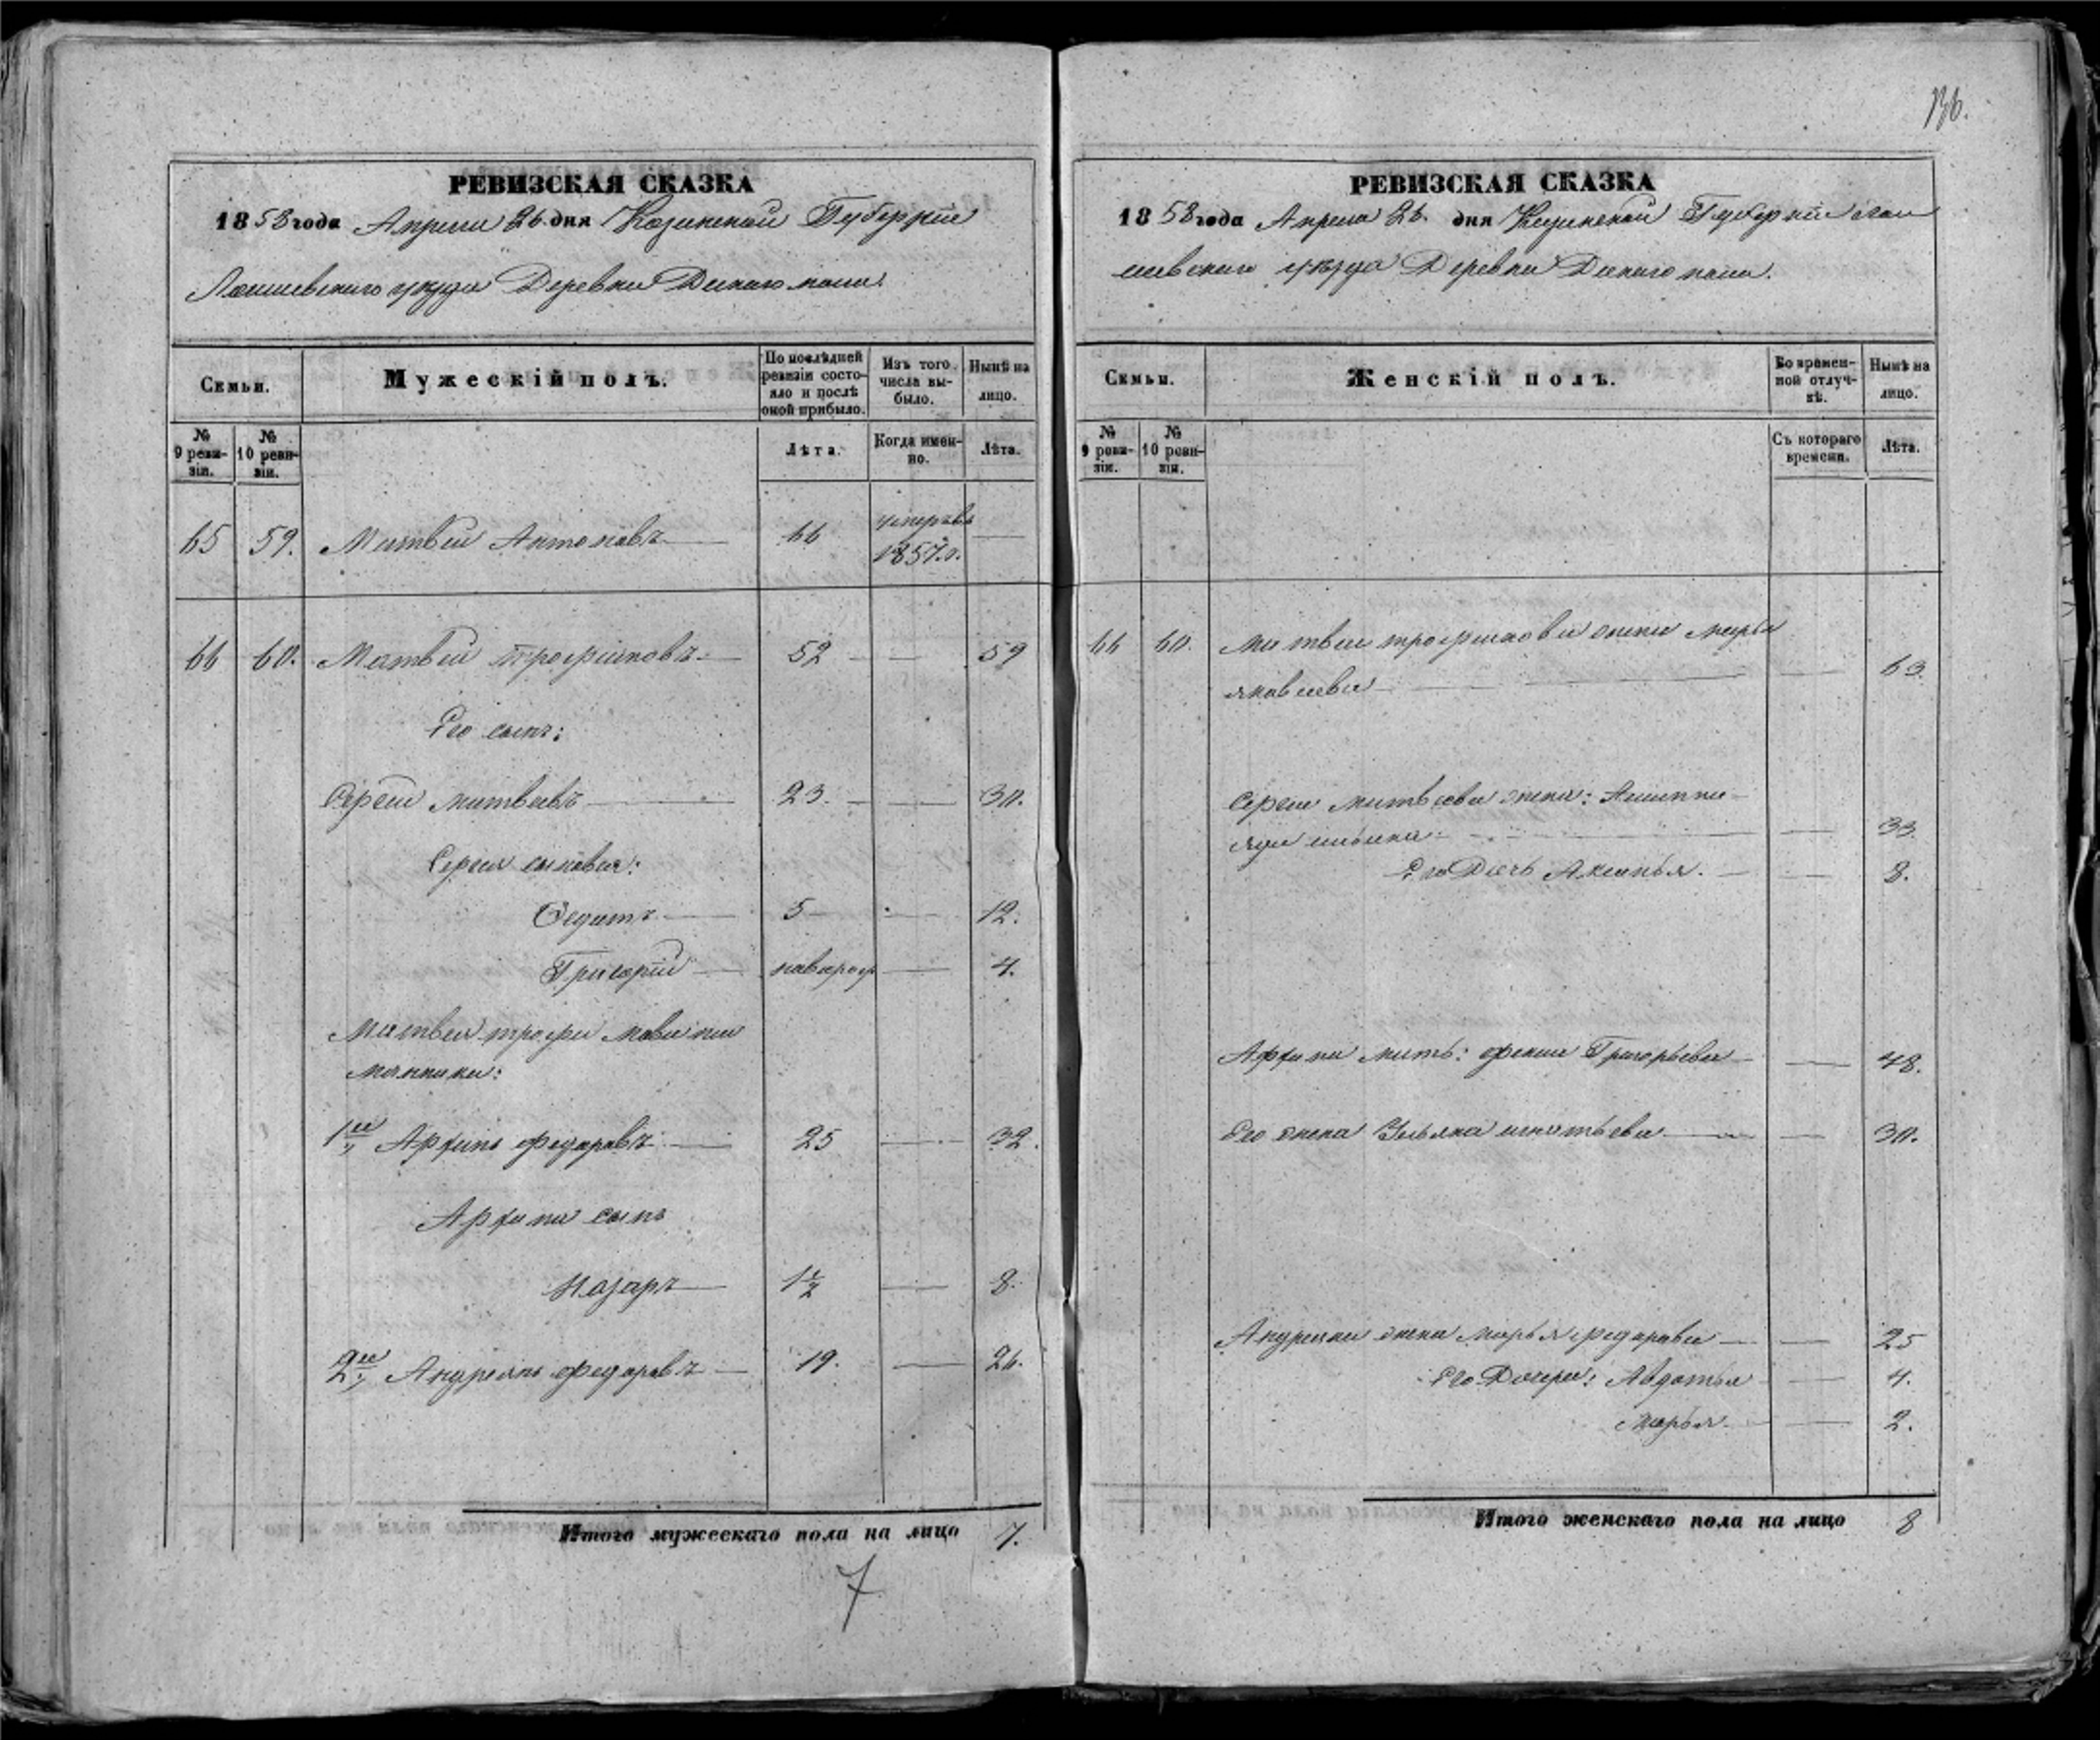 136.
РЕВИЗСКАЯ СКАЗКА
1858 года Апреля 26 дня Казанской Губерніи
Лаишевскаго уѣзда Деревни
Семьи.
Мужескій полъ.
По послѣдней ревизіи состояло и послѣ оной прибыло.
Изъ того числа выбыло.
Нынѣ на лицо.
№ 9 ревизіи.
№ 10 ревизіи.
Лѣта.
Когда именно.
Лѣта.
65 59. Матвей Антоновъ 66 умеръ въ 1857.г.
66 60. Матвей трофимовъ 52 59
Его сынъ:
Сергей матвеевъ 23. 30.
Сергея сыновья:
Федотъ 5 12.
Григорій новорож 4.
Матвея трофимова племянники:
1й Архипъ федаровъ 25 32.
Архипа сынъ
Назаръ 1½ 8.
2й Андреянъ федаровъ 19. 26.
Итого мужескаго пола на лицо 7.
7
РЕВИЗСКАЯ СКАЗКА
1858 года Апреля 26. дня Казанской Губерніи Лаи
шевскаго уѣзда Деревни
Семьи.
Женскій полъ.
Во временной отлучкѣ.
Нынѣ на лицо.
№ 9 ревизіи.
№ 10 ревизіи.
Съ котораго времени.
Лѣта.
66 60. Матвея трофимова жена марья
яковлева 63.
Сергея матвеева жена:
33.
Его Дочь Аксинья. 8.
Архипа мать: Григорьева 48.
Его жена Ульяна игнатьева 30.
Андреяна жена марья федарава 25
Его Дочери: Авдотья 4.
марья 2.
Итого женскаго пола на лицо 8